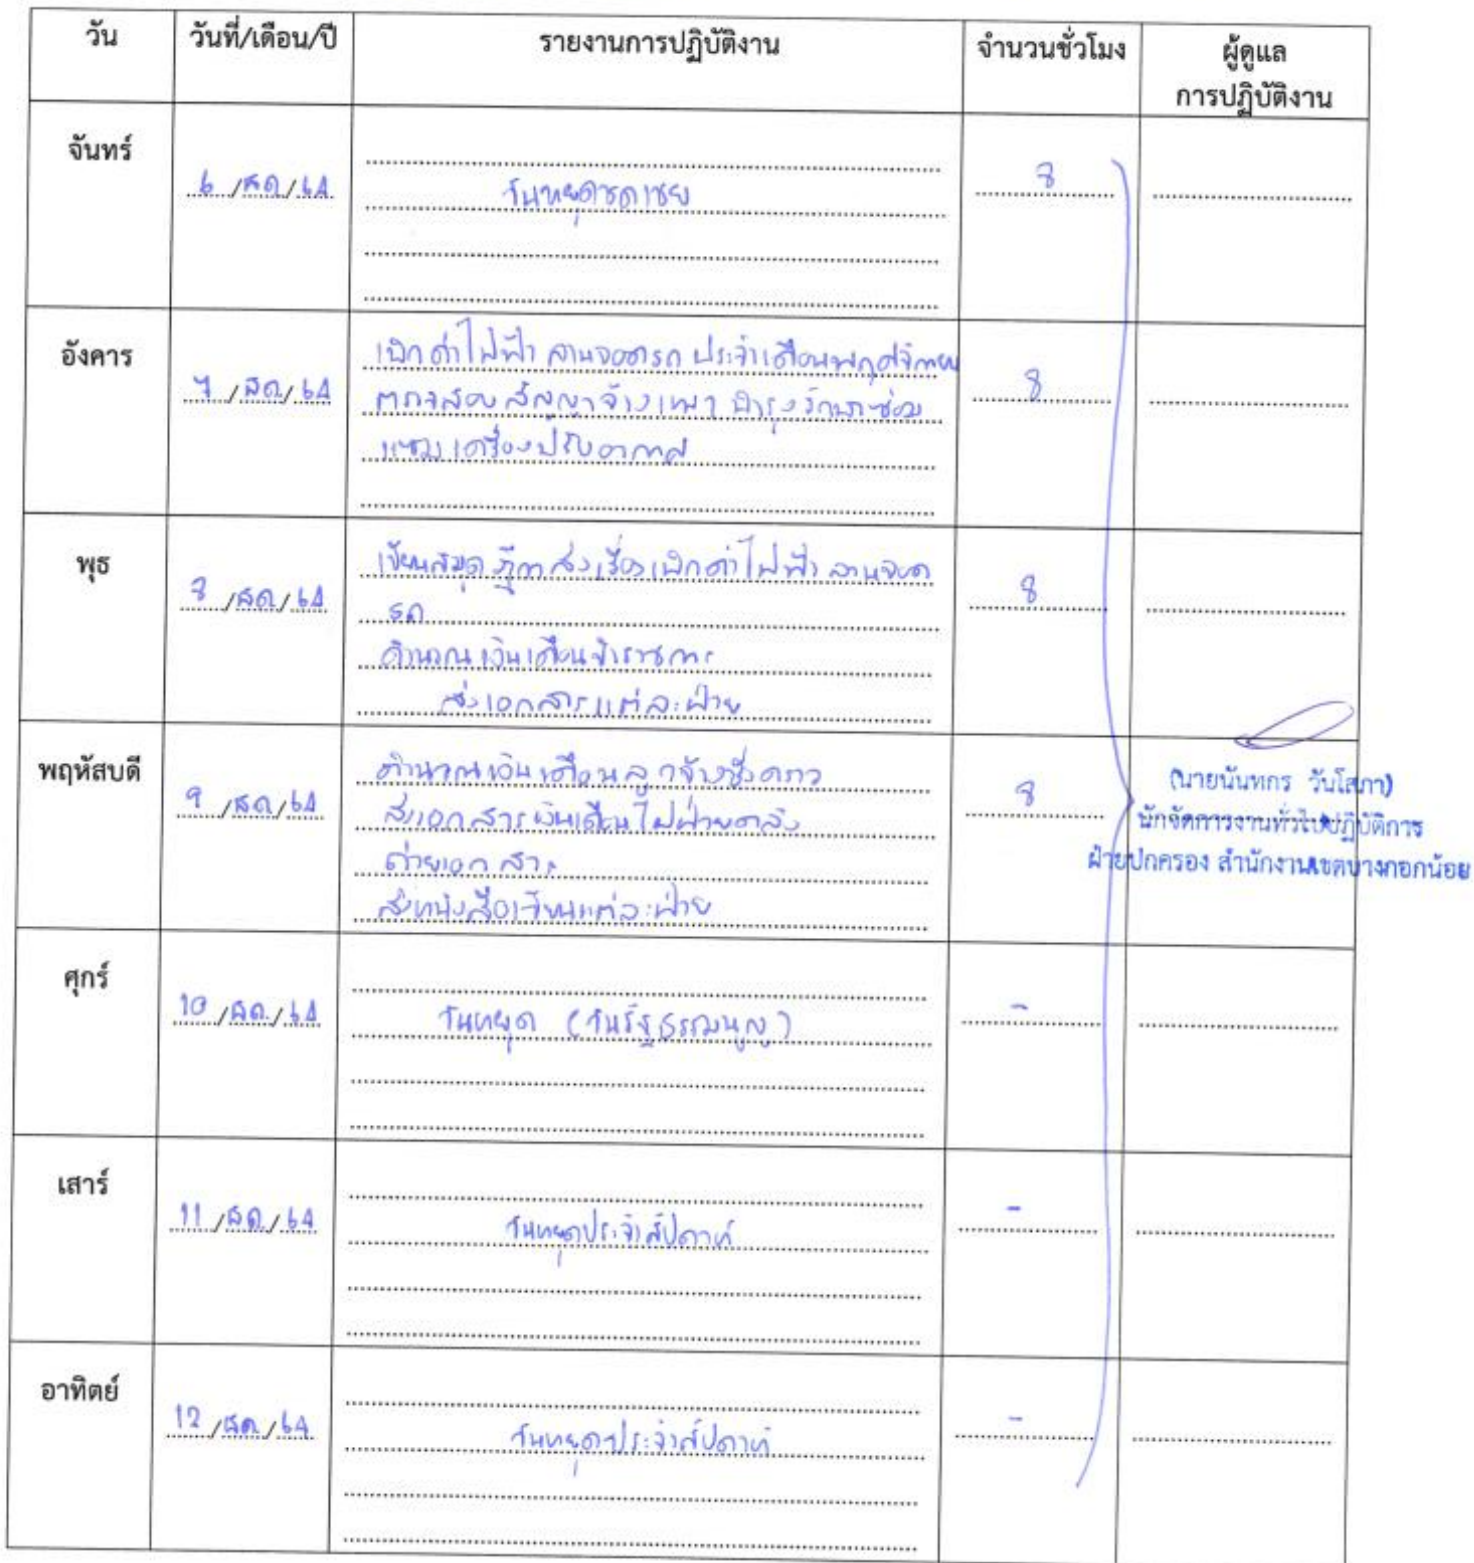 วัน วันที่/เดือน/ปี รายงานการปฏิบัติงาน จำนวนชั่วโมง ผู้ดูแล
การปฏิบัติงาน
จันทร์
6 /ธค/ 64 วันหยุดชดเชย 8
อังคาร
เบิกค่าไฟฟ้า ลานจอดรถ ประจำเดือนพฤศจิกายน
7 / ธค/ 64 ตรวจสอบ สัญญาจ้างเหมา บำรุงรักษาซ่อม 8
แซม เครื่องปรับอากาศ
พุธ
เขียนสมุดฎีกา ส่งเรื่องเบิกค่าไฟฟ้า ลานจอด
8 /ธค/ 64 รถ 8
คำนวณ เงินเดือนข้าราชการ
ส่งเอกสารแต่ละฝ่าย
พฤหัสบดี
คำนวณเงินเดือนลูกจ้างชั่วคราว
9 /ธค/ 64 ส่งเอกสารเงินเดือนไปฝ่ายคลัง 8
ถ่ายเอกสาร
ส่งหนังสือเวียนแต่ละฝ่าย
(นายนันทกร วันโสภา)
นักจัดการงานทั่วไปปฏิบัติการ
ฝ่ายปกครอง สำนักงานเขตบางกอกน้อย
ศุกร์
10 /ธค./ 64 วันหยุด (วันรัฐธรรมนูญ) -
เสาร์
11 /ธค/ 64 วันหยุดประจำสัปดาห์ -
อาทิตย์
12 /ธค/ 64 วันหยุดประจำสัปดาห์ -